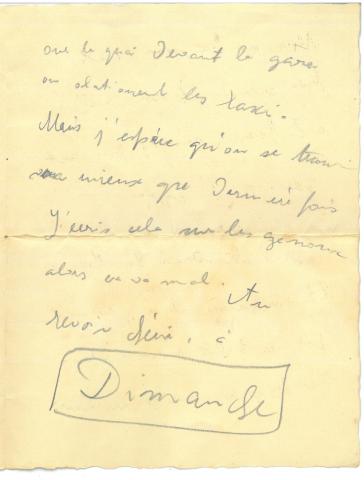 sur le quai devant la gare
ou stationent les taxi.
Mais j'espère qu'on se trou
mieux que dernière fois
J'écris cela sur les genoux
alors ca va mal. Au
revoir chéri, à
Dimanche